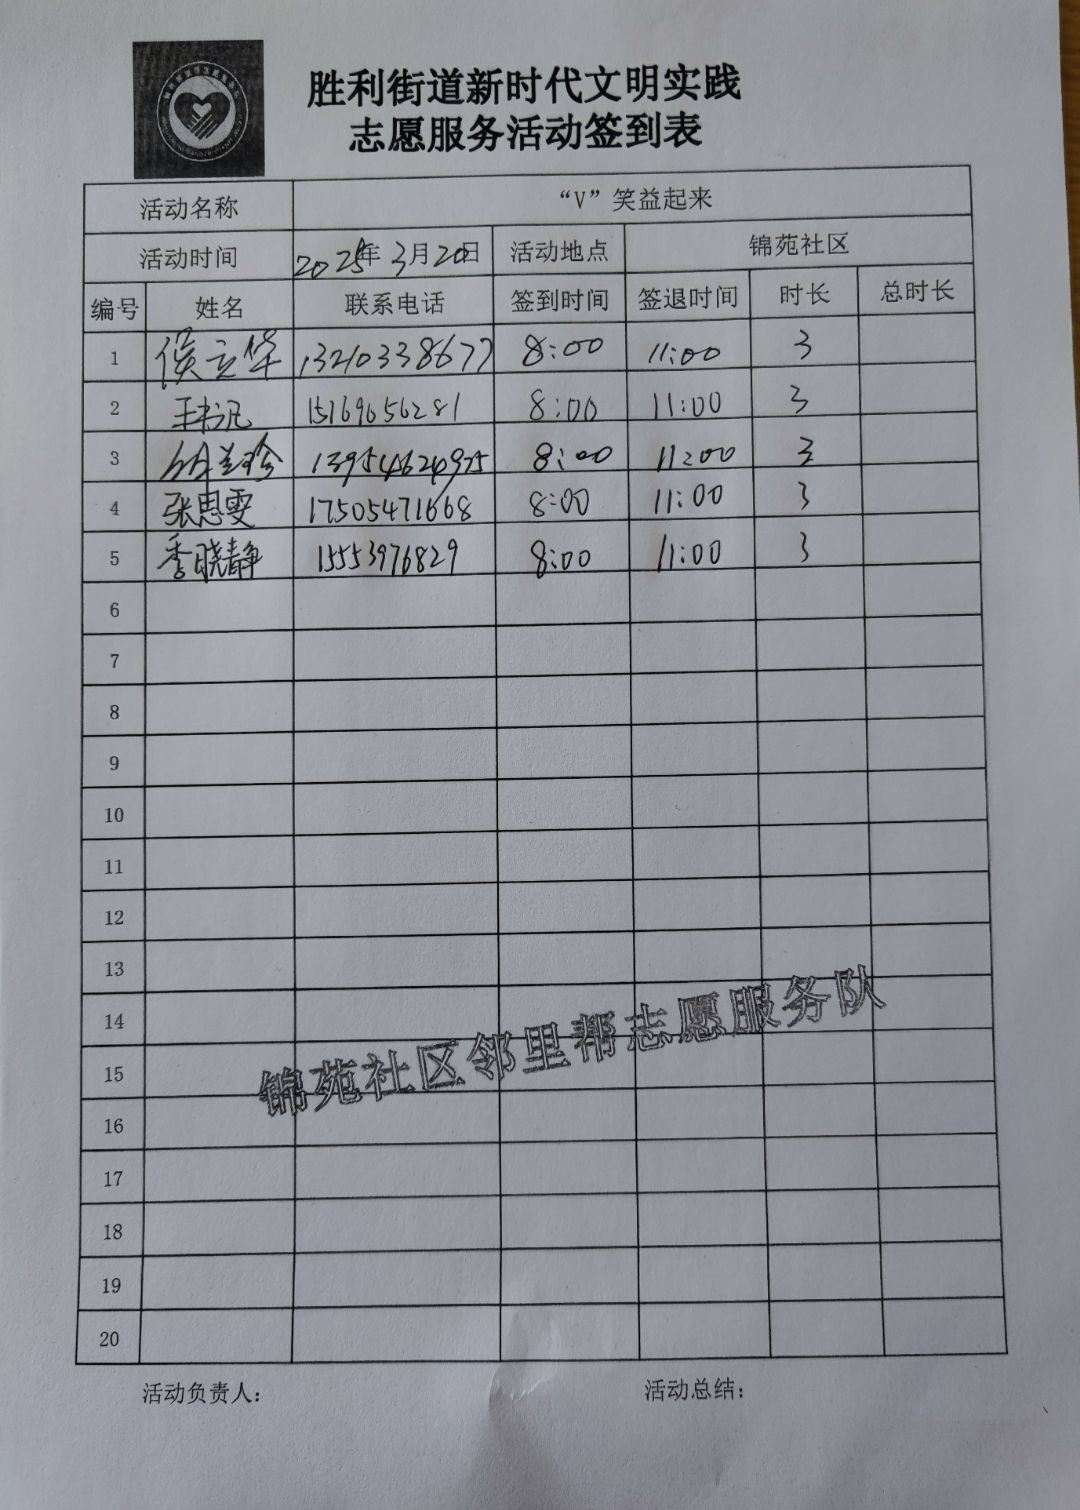 胜利街道新时代文明实践
志愿服务活动签到表
活动名称 “V”笑益起来
活动时间 2025年3月20日 活动地点 锦苑社区
编号 姓名 联系电话 签到时间 签退时间 时长 总时长
1 侯立华 13210338677 8:00 11:00 3
2 王书凡 15169656281 8:00 11:00 3
3 13954624975 8:00 11:00 3
4 张思雯 17505471668 8:00 11:00 3
5 季晓静 15553976829 8:00 11:00 3
6
7
8
9
10
11
12
13
14
15
16
17
18
19
20
锦苑社区邻里帮志愿服务队
活动负责人: 活动总结: